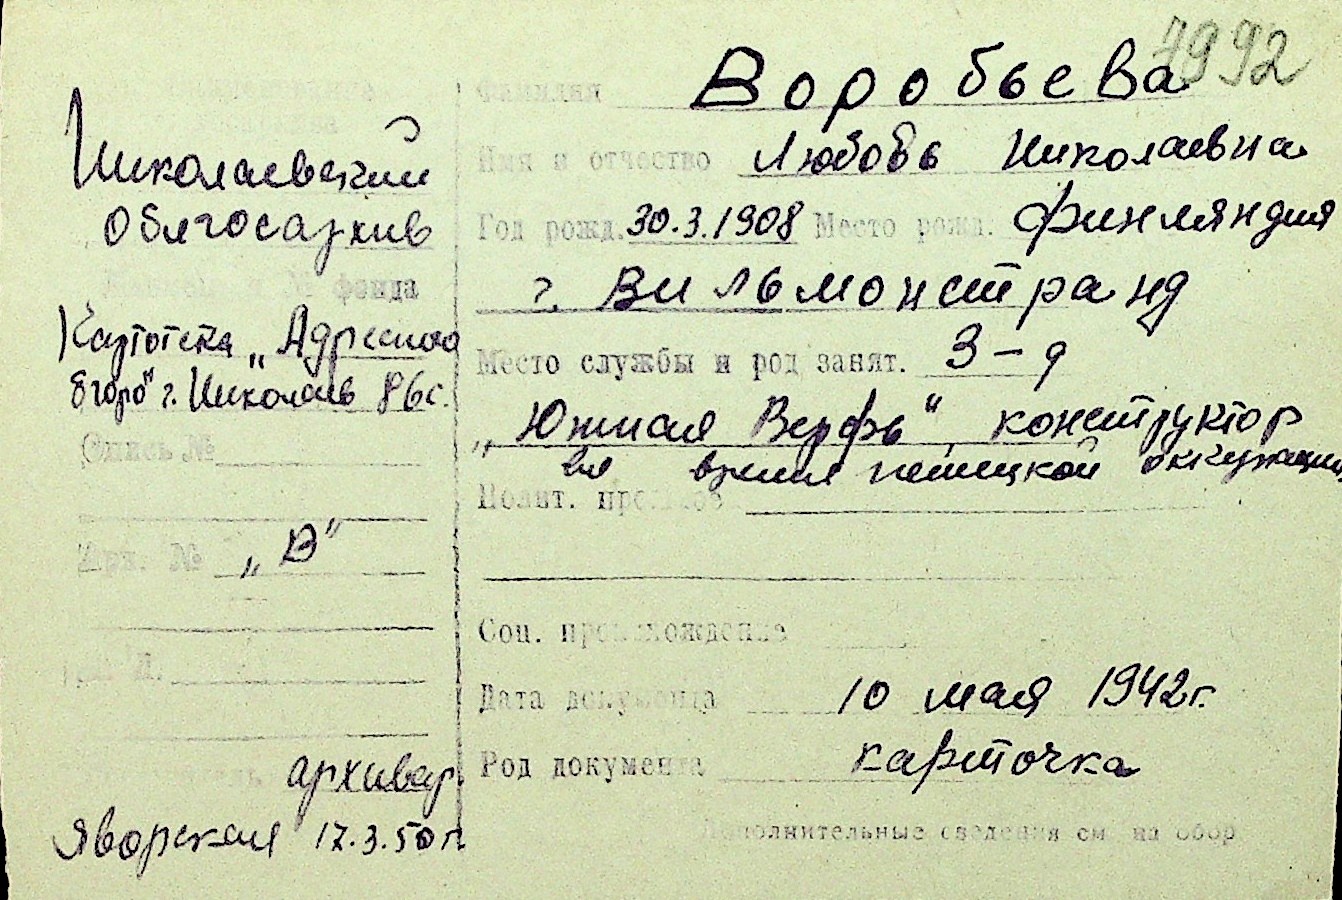 7992
Николаевский
Облгосархив
№ фонда
Картотека „Адресного
бюро" г. Николаев 86с.
Опись №
Арх. № „В"
архивар
Яворская 17.3.50 г.
Фамилия Воробьева
Имя и отчество Любовь Николаевна
Год рожд. 30.3.1908 Место рожд. Финляндия
г. Вильмонстранд
Место службы и род занят. З-д
„Южная Верфь", конструктор
во время немецкой оккупации
Полит.
Соц. происхождение
Дата документа 10 мая 1942 г.
Род документа карточка
Дополнительные сведения см. на обор.